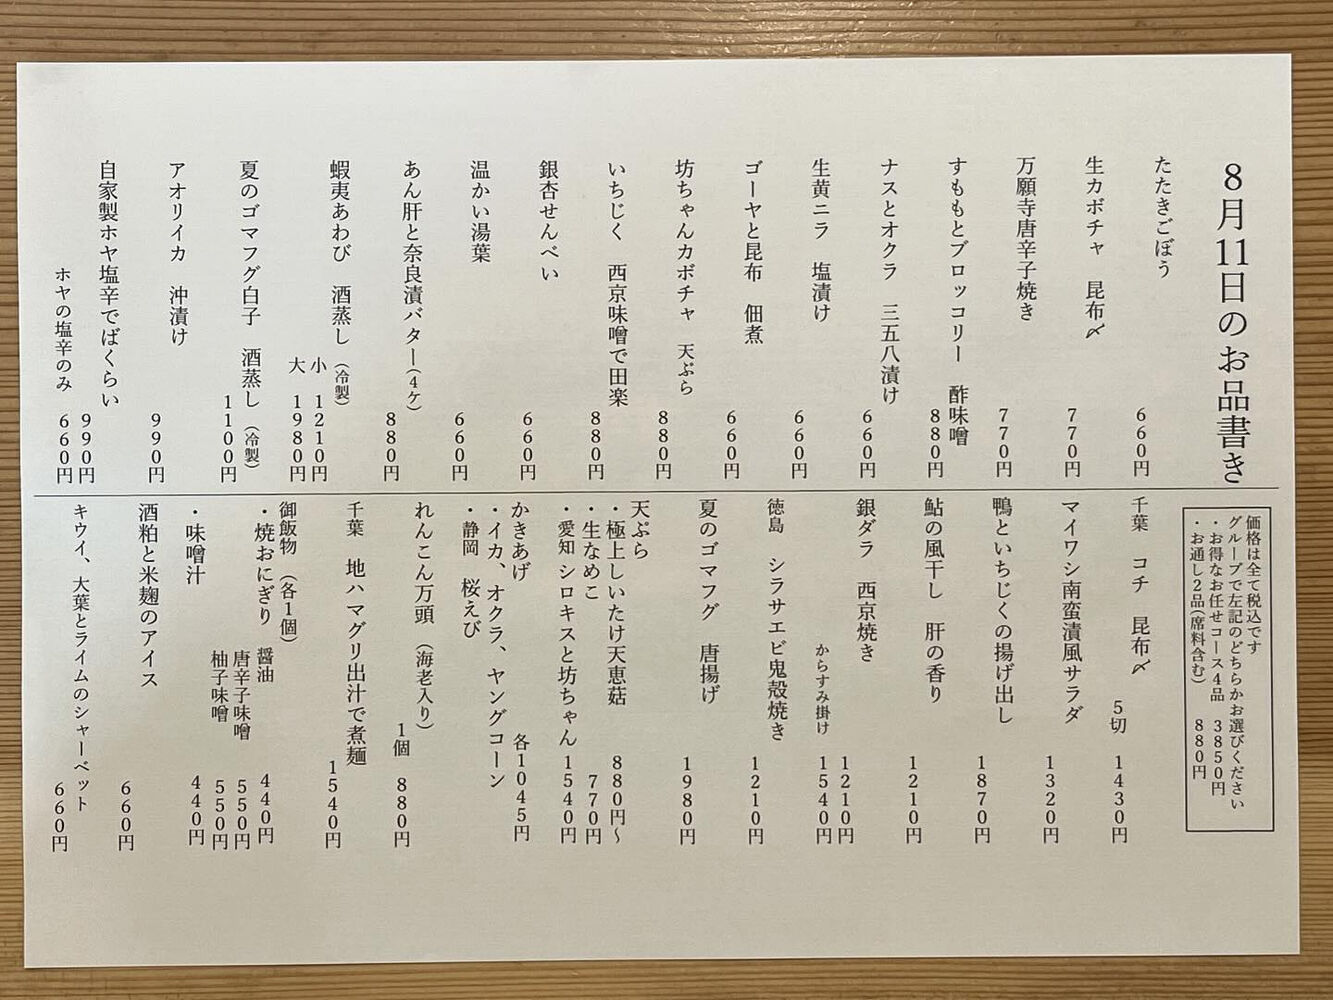 8月11日のお品書き
たたきごぼう 660円
生カボチャ 昆布〆 770円
万願寺唐辛子焼き 770円
すももとブロッコリー 酢味噌 880円
ナスとオクラ 三五八漬け 660円
生黄ニラ 塩漬け 660円
ゴーヤと昆布 佃煮 660円
坊ちゃんカボチャ 天ぷら 880円
いちじく 西京味噌で田楽 880円
銀杏せんべい 660円
温かい湯葉 660円
あん肝と奈良漬バター(4ケ) 880円
蝦夷あわび 酒蒸し(冷製)
小 1210円
大 1980円
夏のゴマフグ白子 酒蒸し(冷製) 1100円
アオリイカ 沖漬け 990円
自家製ホヤ塩辛でばくらい 990円
ホヤの塩辛のみ 660円
価格は全て税込です
グループで左記のどちらかお選びください
・お得なお任せコース4品 3850円
・お通し2品(席料含む) 880円
千葉 コチ 昆布〆 5切 1430円
マイワシ南蛮漬風サラダ 1320円
鴨といちじくの揚げ出し 1870円
鮎の風干し 肝の香り 1210円
銀ダラ 西京焼き 1210円
からすみ掛け 1540円
徳島 シラサエビ鬼殻焼き 1210円
夏のゴマフグ 唐揚げ 1980円
天ぷら
・極上しいたけ天恵菇 880円〜
・生なめこ 770円
・愛知 シロキスと坊ちゃん 1540円
かきあげ 各1045円
・イカ、オクラ、ヤングコーン
・静岡 桜えび
れんこん万頭(海老入り) 1個 880円
千葉 地ハマグリ出汁で煮麺 1540円
御飯物(各1個)
・焼おにぎり 醤油 440円
唐辛子味噌 550円
柚子味噌 550円
・味噌汁 440円
酒粕と米麹のアイス 660円
キウイ、大葉とライムのシャーベット 660円